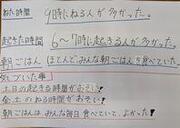 ねた時間 9時にねる人が多かった。
起きた時間 6〜7時に起きる人が多かった。
朝ごはん ほとんどみんな朝ごはんを食べていた。
気づいた事
土日の起きる時間がおそい!
金土のねる時間がおそい!
朝ごはんはみんな毎日食べていて、よかった!